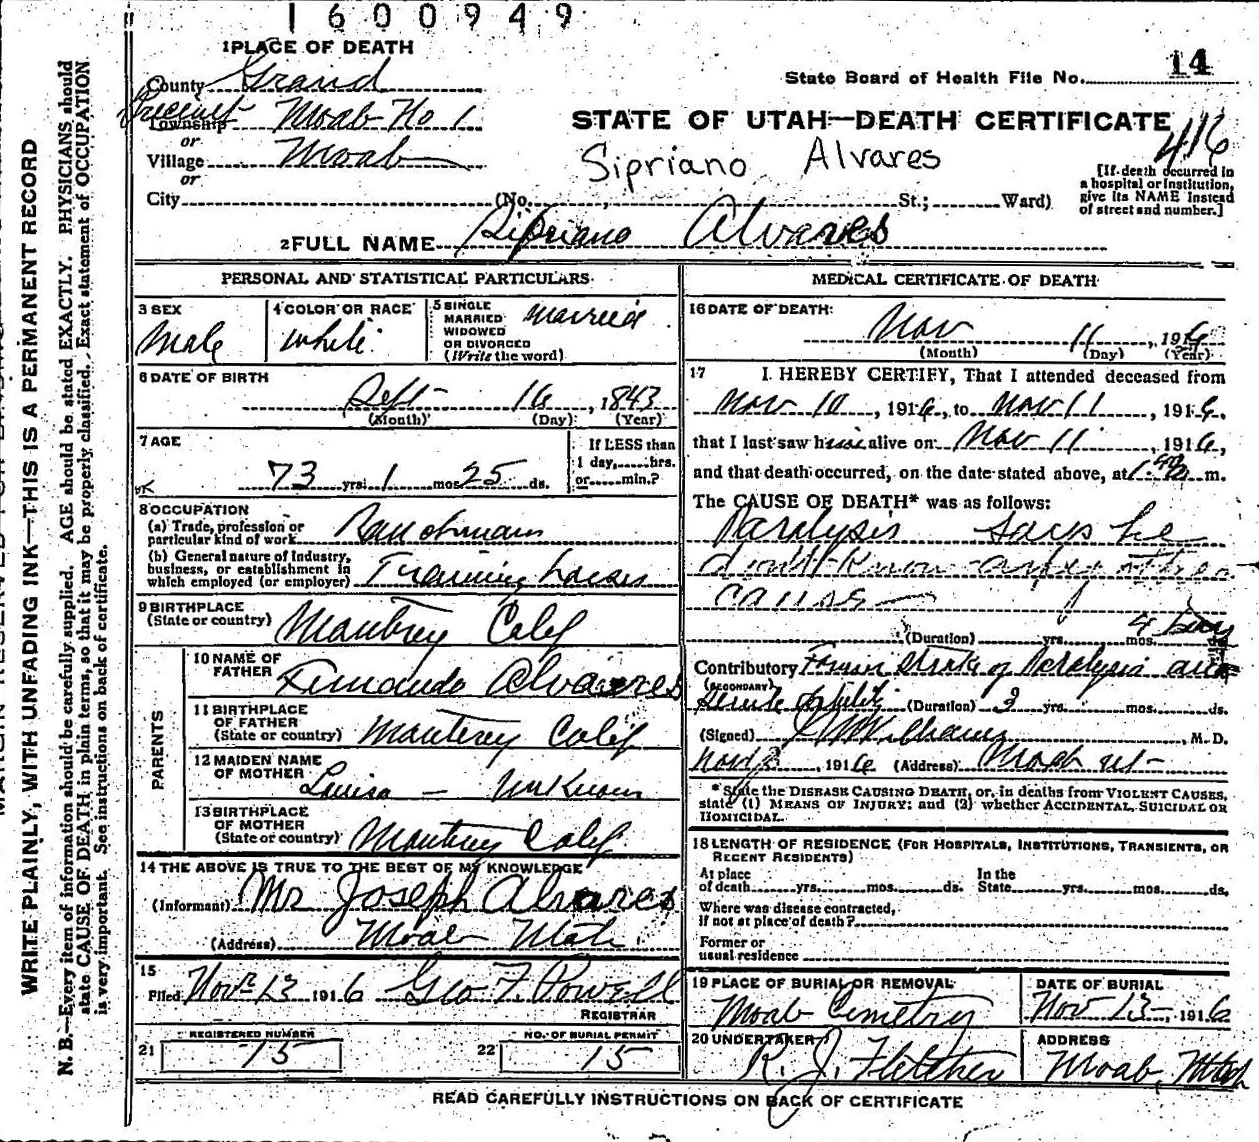 1600949
1 PLACE OF DEATH
County Grand
State Board of Health File No. 14
Precinct Township Moab No 1
or
Village Moab
or
City (No. , St.; Ward)
STATE OF UTAH—DEATH CERTIFICATE
416
Sipriano Alvares
[If death occurred in a hospital or institution, give its NAME instead of street and number.]
2 FULL NAME Sipriano Alvares
PERSONAL AND STATISTICAL PARTICULARS
3 SEX
Male
4 COLOR OR RACE
White
5 SINGLE
MARRIED
WIDOWED
OR DIVORCED
(Write the word)
Married
6 DATE OF BIRTH
Sept 16, 1843
(Month) (Day) (Year)
7 AGE
73 yrs. 1 mos. 25 ds.
If LESS than
1 day, hrs.
or min.?
8 OCCUPATION
(a) Trade, profession or
particular kind of work Ranchman
(b) General nature of Industry,
business, or establishment in
which employed (or employer) Training horses
9 BIRTHPLACE
(State or country) Mantrey Calif
PARENTS
10 NAME OF
FATHER Fernando Alvares
11 BIRTHPLACE
OF FATHER
(State or country) Monterey Calif
12 MAIDEN NAME
OF MOTHER Louisa — Unknown
13 BIRTHPLACE
OF MOTHER
(State or country) Montrey Calif
14 THE ABOVE IS TRUE TO THE BEST OF MY KNOWLEDGE
(Informant) Mr Joseph Alvares
(Address) Moab Utah
15
Filed Nov 13 1916 Geo F. Powell
REGISTRAR
REGISTERED NUMBER
21 15
NO. OF BURIAL PERMIT
22 15
MEDICAL CERTIFICATE OF DEATH
16 DATE OF DEATH:
Nov 11, 1916
(Month) (Day) (Year)
17 I HEREBY CERTIFY, That I attended deceased from
Nov 10, 1916, to Nov 11, 1916,
that I last saw him alive on Nov 11, 1916,
and that death occurred, on the date stated above, at m.
The CAUSE OF DEATH* was as follows:
Paralysis says he
don't Know any other
cause
(Duration) yrs. mos. 4 Days
Contributory Former Stroke of Paralysis and
(SECONDARY)
Senile debility (Duration) yrs. mos. ds.
(Signed) Williams, M. D.
Nov, 1916 (Address) Moab Ut
* State the DISEASE CAUSING DEATH, or, in deaths from VIOLENT CAUSES,
state (1) MEANS OF INJURY; and (2) whether ACCIDENTAL, SUICIDAL OR
HOMICIDAL.
18 LENGTH OF RESIDENCE (FOR HOSPITALS, INSTITUTIONS, TRANSIENTS, OR
RECENT RESIDENTS)
At place In the
of death yrs. mos. ds. State yrs. mos. ds.
Where was disease contracted,
If not at place of death?
Former or
usual residence
19 PLACE OF BURIAL OR REMOVAL
Moab Cemetery
DATE OF BURIAL
Nov 13, 1916
20 UNDERTAKER
R. J. Fletcher
ADDRESS
Moab, Utah
READ CAREFULLY INSTRUCTIONS ON BACK OF CERTIFICATE
WRITE PLAINLY, WITH UNFADING INK—THIS IS A PERMANENT RECORD
N. B.—Every item of information should be carefully supplied. AGE should be stated EXACTLY. PHYSICIANS should
state CAUSE OF DEATH in plain terms, so that it may be properly classified. Exact statement of OCCUPATION
is very important. See instructions on back of certificate.